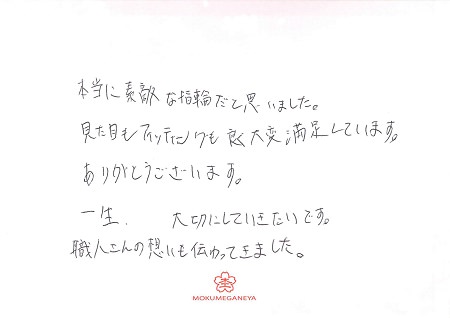 本当に素敵な指輪だと思いました。
見た目もフィッティングも良く大変満足しています。
ありがとうございます。
一生、大切にしていきたいです。
職人さんの想いも伝わってきました。
MOKUMEGANEYA